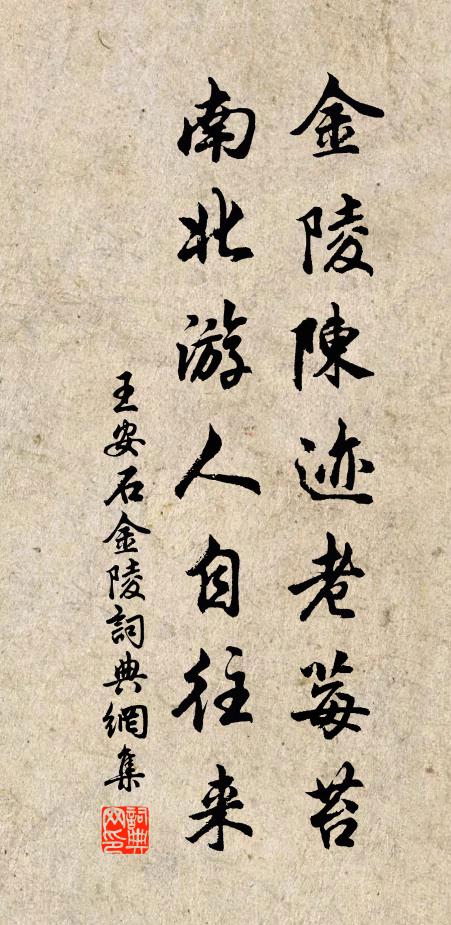 金陵陳迹老莓苔
南北游人自往来
王安石金陵詞典網集
詞典网印